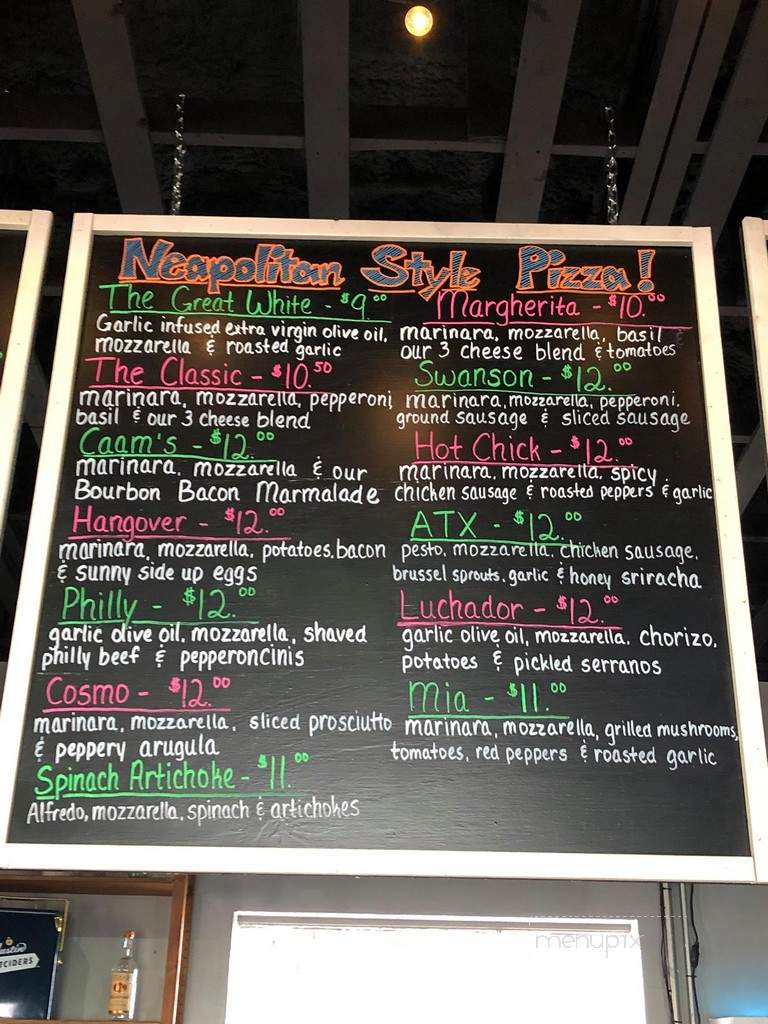 Neapolitan Style Pizza!
The Great White - $9.00
Garlic infused extra virgin olive oil,
mozzarella & roasted garlic
The Classic - $10.50
marinara, mozzarella, pepperoni,
basil & our 3 cheese blend
Caam's - $12.00
marinara, mozzarella & our
Bourbon Bacon Marmalade
Hangover - $12.00
marinara, mozzarella, potatoes, bacon
& sunny side up eggs
Philly - $12.00
garlic olive oil, mozzarella, shaved
philly beef & pepperoncinis
Cosmo - $12.00
marinara, mozzarella, sliced prosciutto
& peppery arugula
Spinach Artichoke - $11.00
Alfredo, mozzarella, spinach & artichokes
Margherita - $10.00
marinara, mozzarella, basil &
our 3 cheese blend & tomatoes
Swanson - $12.00
marinara, mozzarella, pepperoni,
ground sausage & sliced sausage
Hot Chick - $12.00
marinara, mozzarella, spicy
chicken sausage & roasted peppers & garlic
ATX - $12.00
pesto, mozzarella, chicken sausage,
brussel sprouts, garlic & honey sriracha
Luchador - $12.00
garlic olive oil, mozzarella, chorizo,
potatoes & pickled serranos
Mia - $11.00
marinara, mozzarella, grilled mushrooms,
tomatoes, red peppers & roasted garlic
menupix